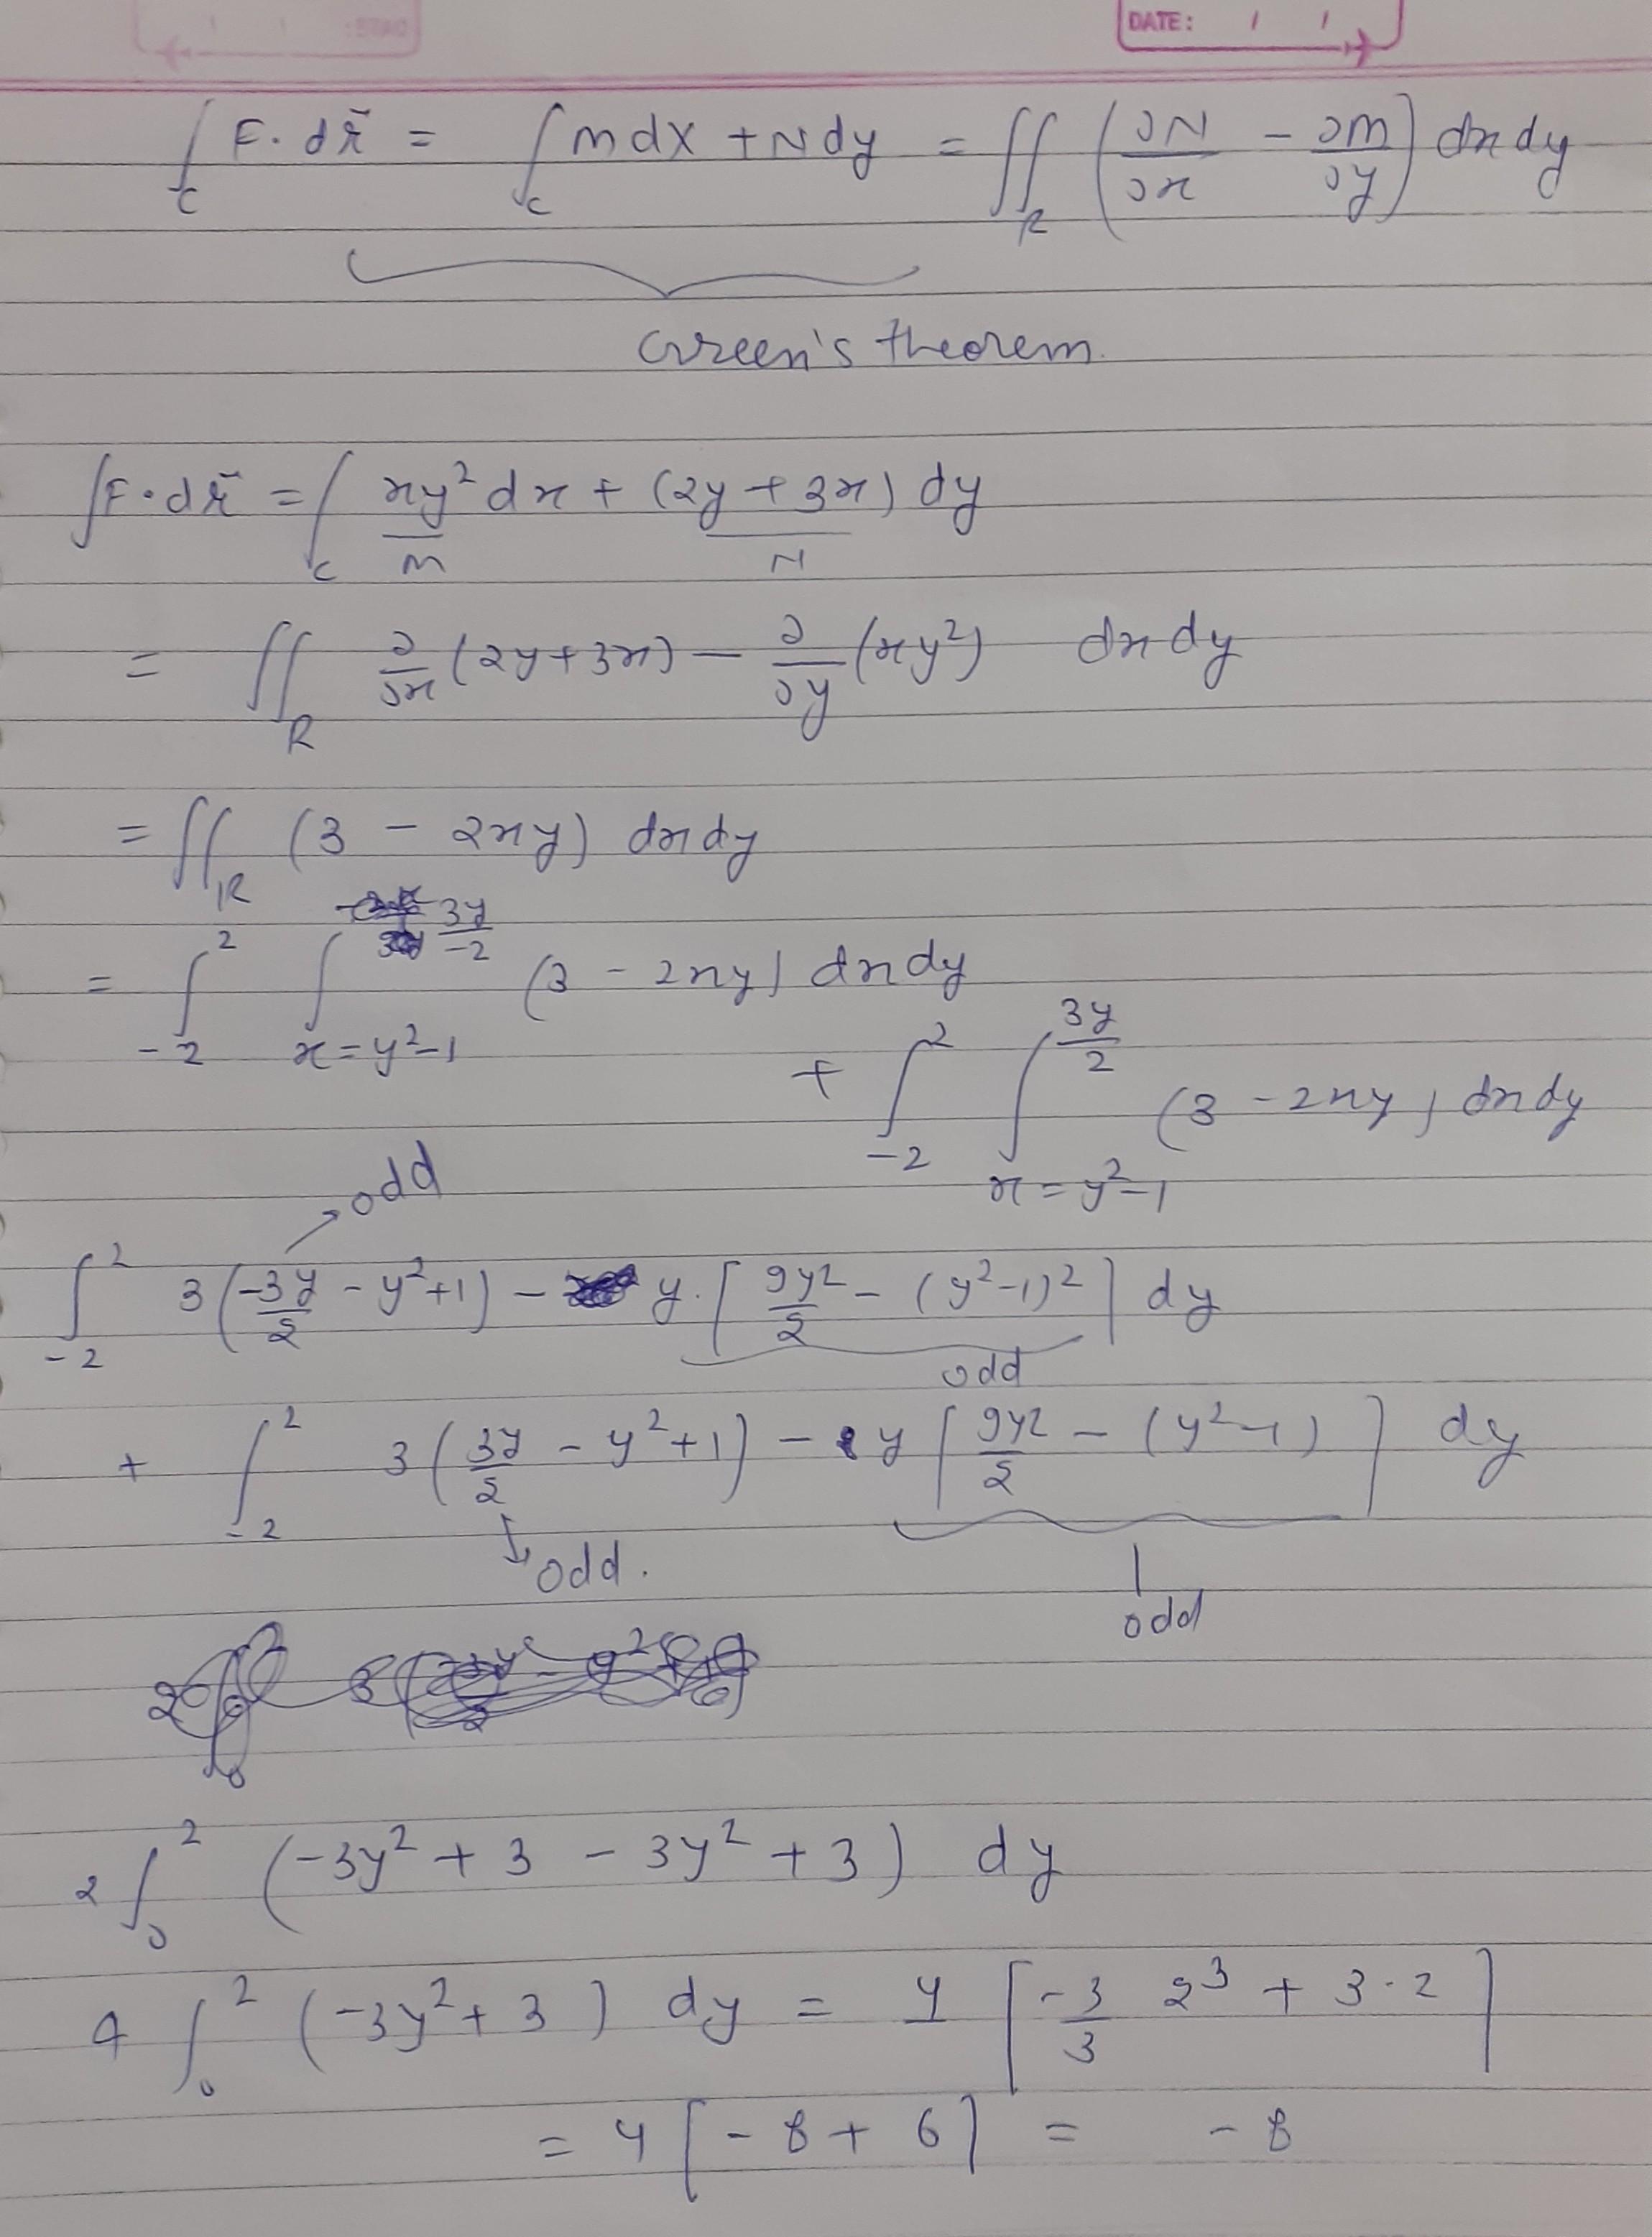 DATE: / /
∫_C F · dr̄ = ∫_C Mdx + Ndy = ∬_R (∂N/∂x - ∂M/∂y) dxdy
Green's theorem.
∫F·dr̄ = ∫_C xy² dx + (2y + 3x) dy
M N
= ∬_R ∂/∂x (2y+3x) - ∂/∂y (xy²) dxdy
= ∬_R (3 - 2xy) dxdy
= ∫_{-2}^{2} ∫_{x=y²-1}^{3y/-2} (3 - 2xy) dxdy
+ ∫_{-2}^{2} ∫_{x=y²-1}^{3y/2} (3 - 2xy) dxdy
odd
∫_{-2}^{2} 3(-3y/2 - y²+1) - y·[9y²/2 - (y²-1)²] dy
odd
+ ∫_{-2}^{2} 3(3y/2 - y²+1) - y[9y²/2 - (y²-1)] dy
odd.
odd
2∫_0^2 (-3y² + 3 - 3y² + 3) dy
4 ∫_0^2 (-3y² + 3) dy = 4 [-3/3 2³ + 3·2]
= 4 [-8 + 6] = -8